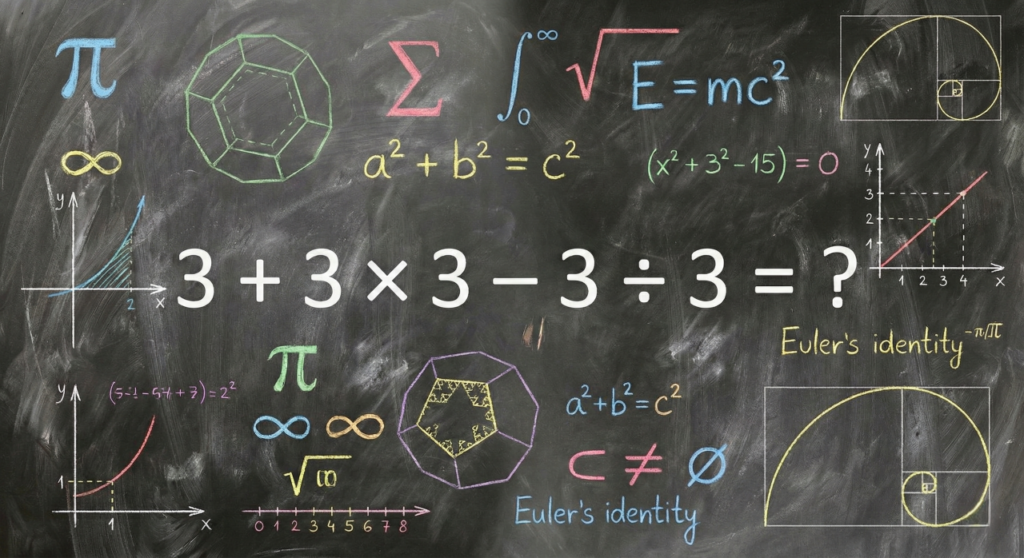 π
∞
∑
∫₀^∞
√
E = mc²
a² + b² = c²
(x² + 3² − 15) = 0
y
x
2
3 + 3 × 3 − 3 ÷ 3 = ?
y
4
3
2
1
1 2 3 4
x
Euler's identity
π
∞ ∞
√∞
0 1 2 3 4 5 6 7 8
y
1
1
x
a² + b² = c²
⊂ ≠ ∅
Euler's identity